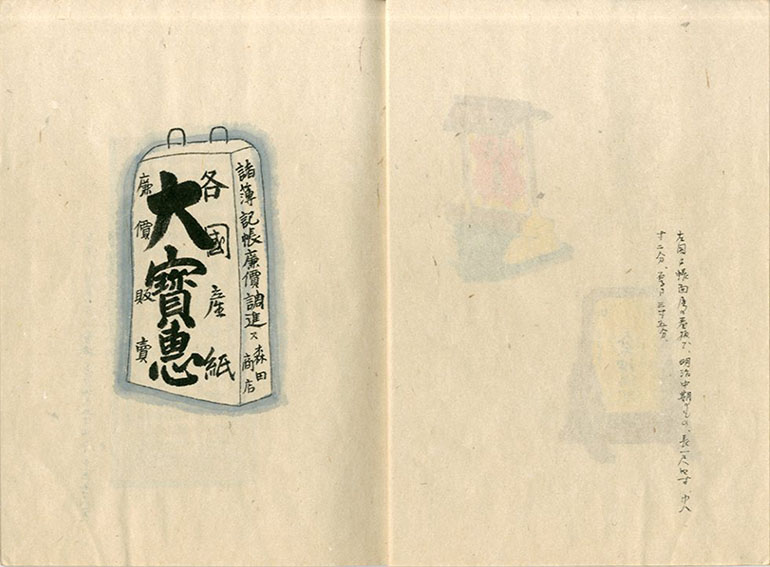 左図ハ帳面屋ノ看板デ、明治中期ノモノ、長一尺 寸、巾八
寸二分、厚サ三寸五分、
諸簿記帳廉價調進ス
森田
商店
各國産紙
大寶恵
廉價販賣